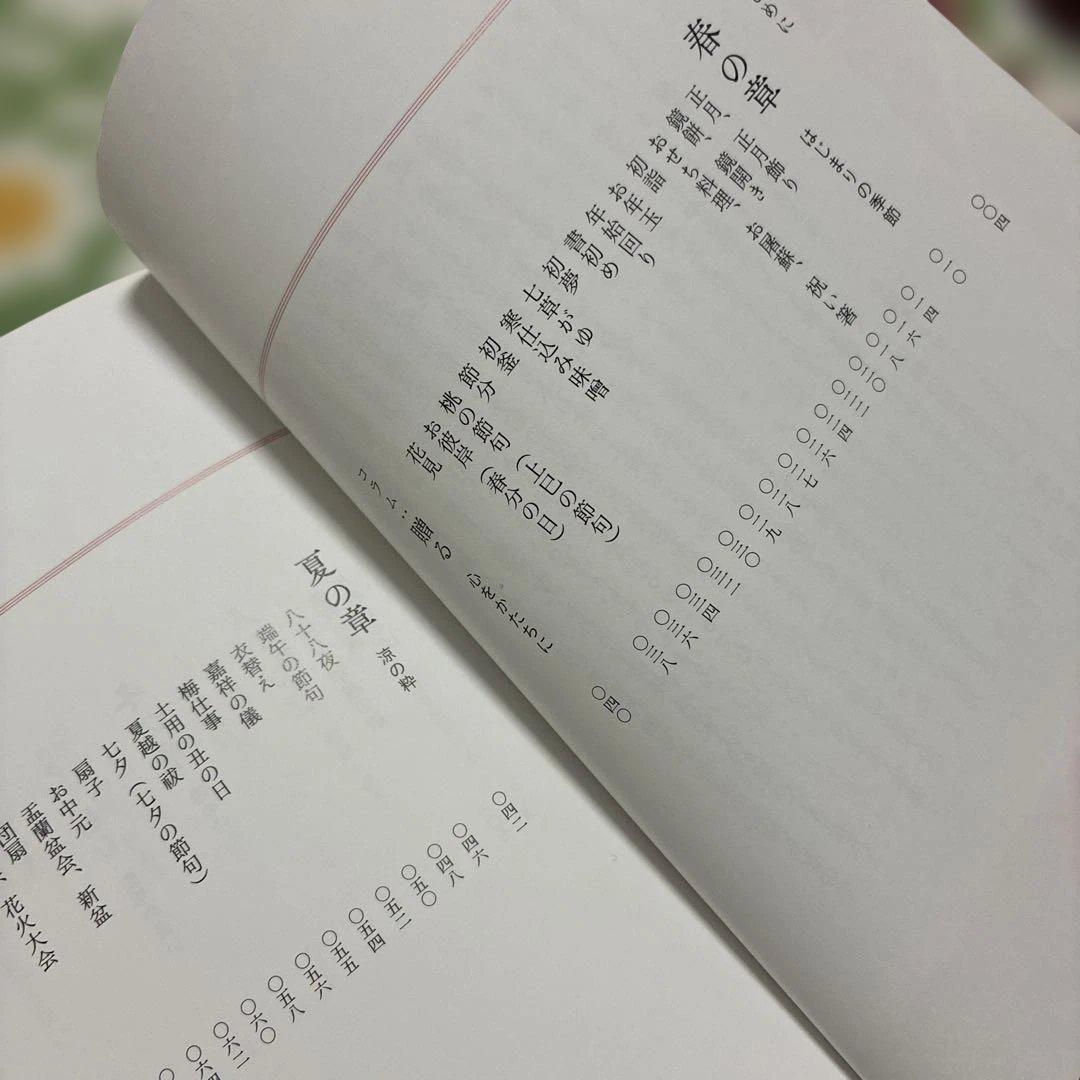 めに 〇〇四
春の章 はじまりの季節 〇一〇
正月、正月飾り 〇一四
鏡餅、鏡開き 〇一六
おせち料理、お屠蘇、祝い箸 〇一八
初詣 〇二〇
お年玉 〇二二
年始回り 〇二四
書初め 〇二六
初夢 〇二七
七草がゆ 〇二八
寒仕込み味噌 〇二九
初釜 〇三〇
節分 〇三二
桃の節句(上巳の節句) 〇三四
お彼岸(春分の日) 〇三六
花見 〇三八
コラム:贈る 心をかたちに 〇四〇
夏の章 涼の粋 〇四二
八十八夜 〇四六
端午の節句 〇四八
衣替え 〇五〇
嘉祥の儀 〇五二
梅仕事 〇五四
土用の丑の日 〇五五
夏越の祓 〇五六
七夕(七夕の節句) 〇五八
扇子 〇六〇
お中元 〇六二
盂蘭盆会、新盆 〇六
団扇、花火大会